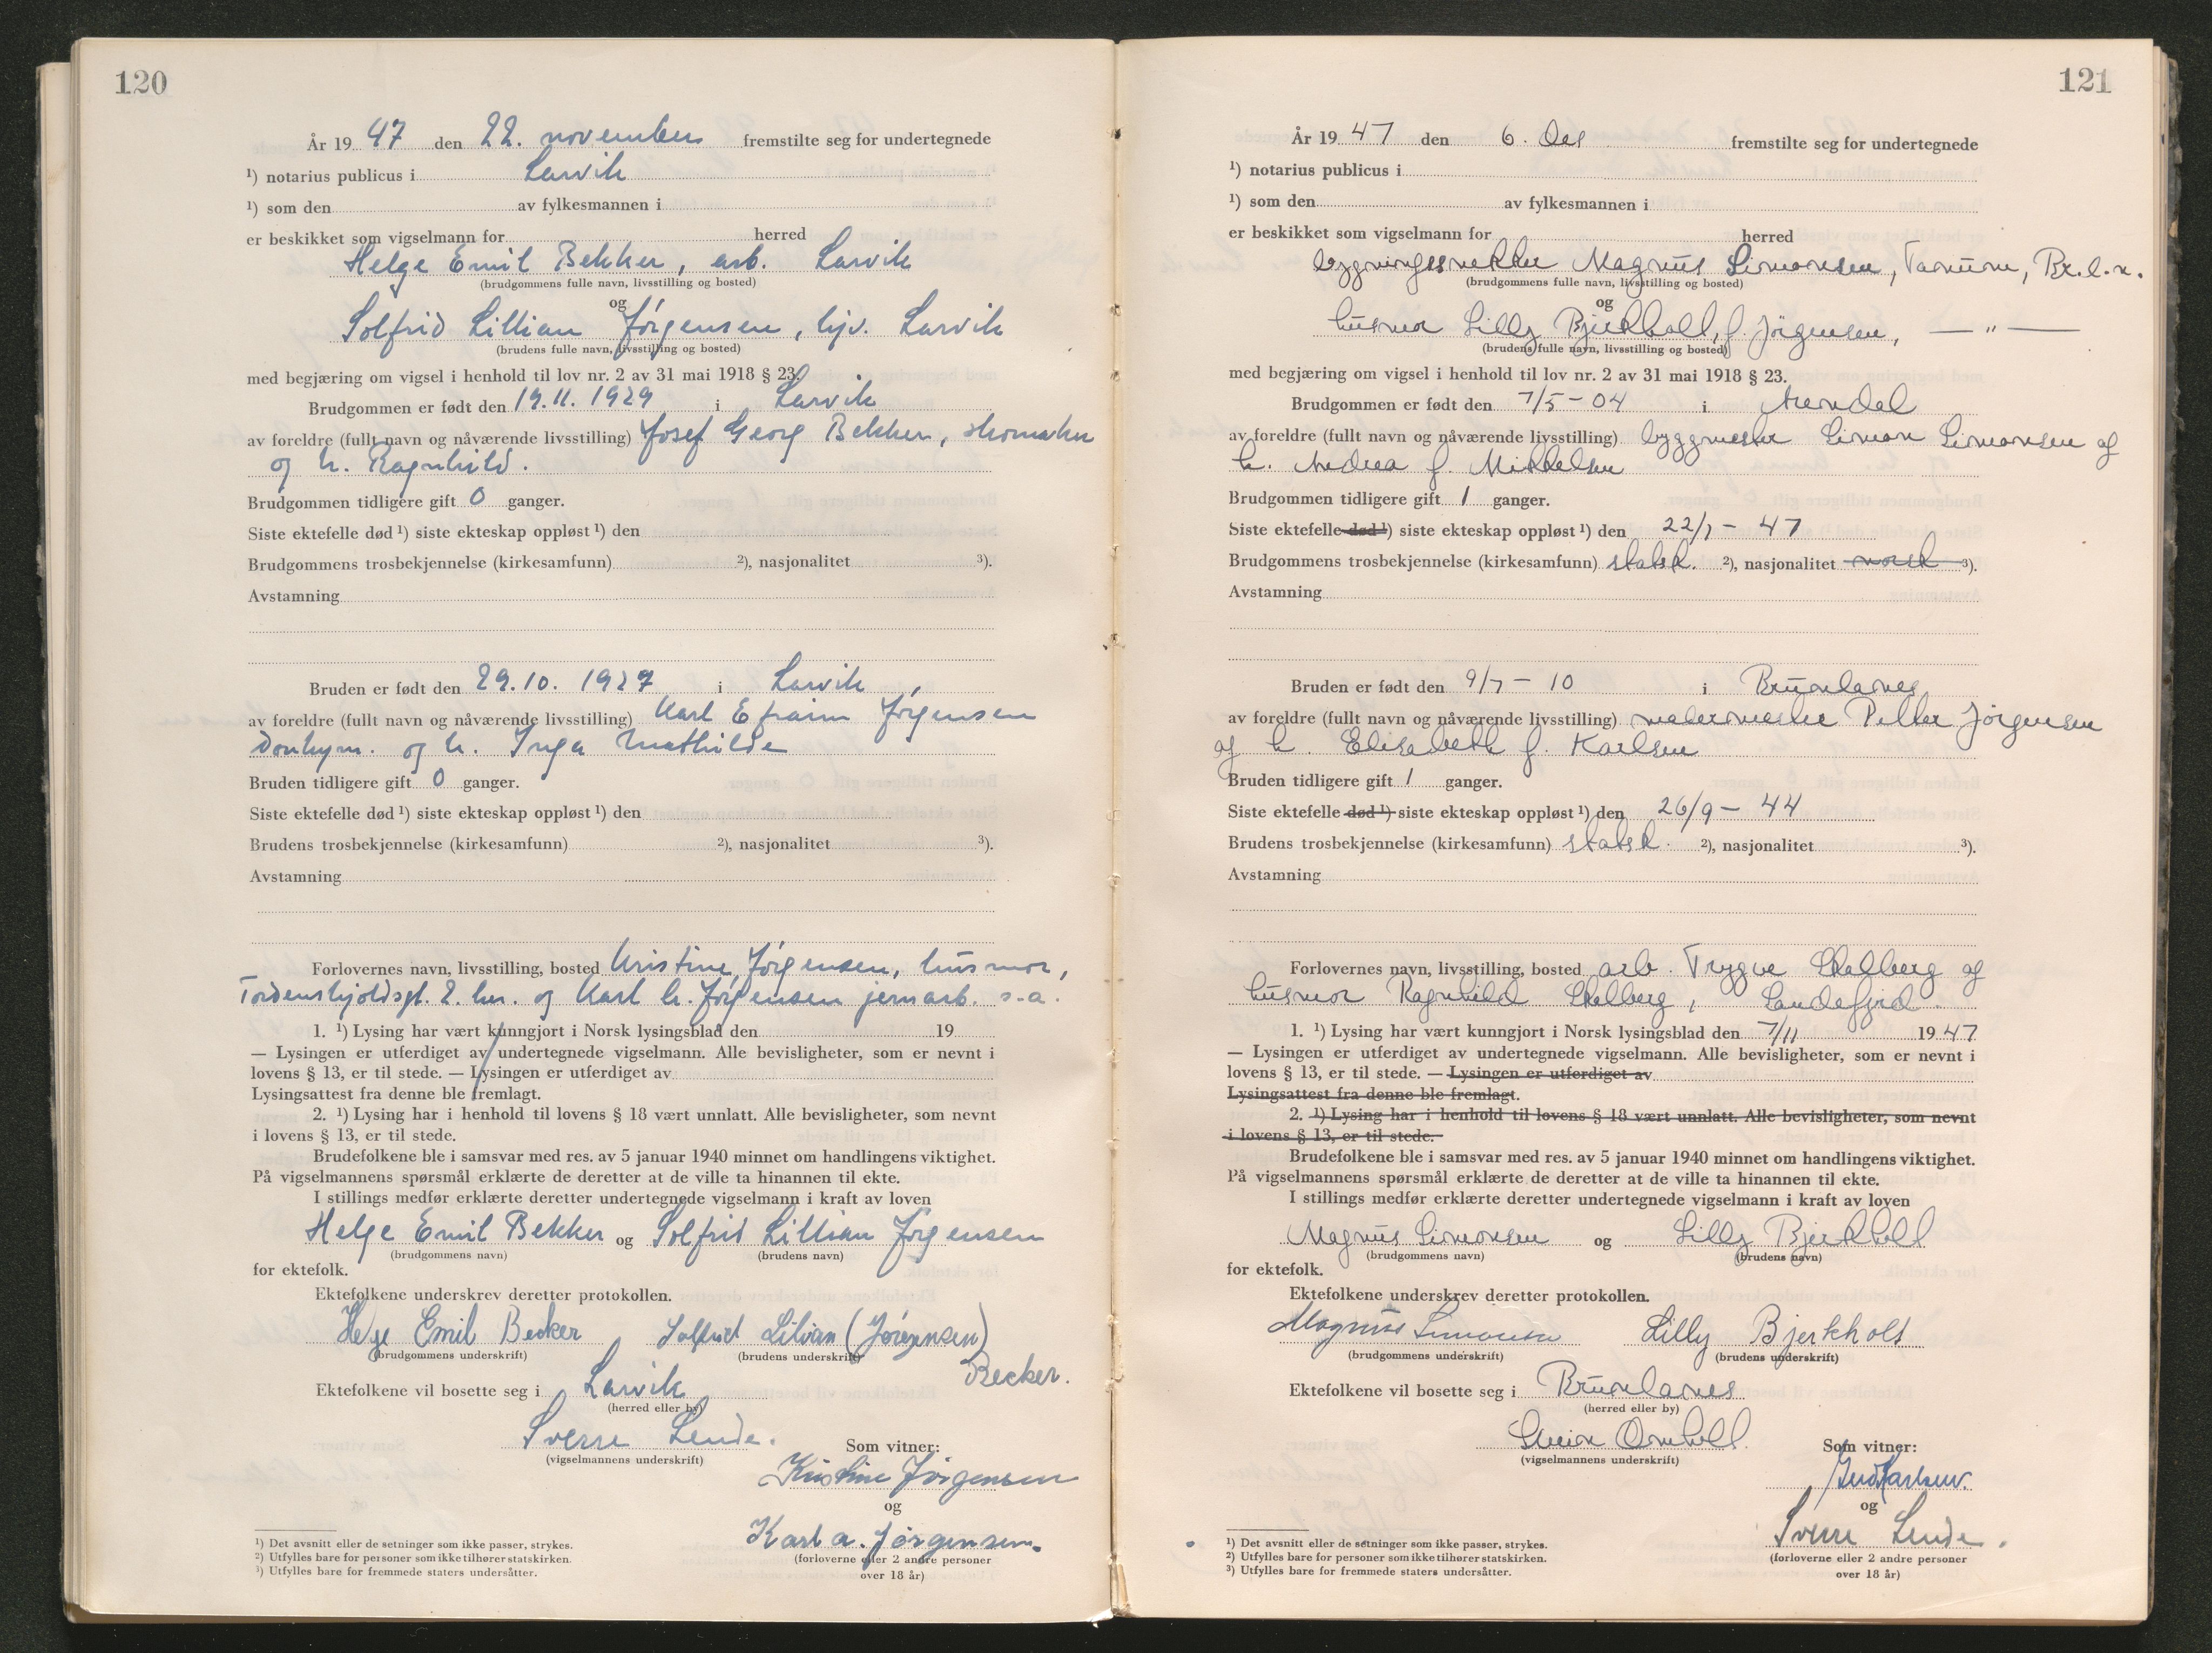 120
År 19 47 den 22. november fremstilte seg for undertegnede
¹) notarius publicus i Larvik
¹) som den av fylkesmannen i
er beskikket som vigselmann for herred
Helge Emil Bekker, arb. Larvik
(brudgommens fulle navn, livsstilling og bosted)
og
Solfrid Lillian Jørgensen, hjv. Larvik
(brudens fulle navn, livsstilling og bosted)
med begjæring om vigsel i henhold til lov nr. 2 av 31 mai 1918 § 23.
Brudgommen er født den 19.11. 1929 i Larvik
av foreldre (fullt navn og nåværende livsstilling) Josef Georg Bekker, skomaker
og h. Ragnhild.
Brudgommen tidligere gift 0 ganger.
Siste ektefelle død ¹) siste ekteskap oppløst ¹) den
Brudgommens trosbekjennelse (kirkesamfunn) ²), nasjonalitet ³).
Avstamning
Bruden er født den 29.10. 1927 i Larvik
av foreldre (fullt navn og nåværende livsstilling) Karl Efraim Jørgensen
donkym. og h. Inga Mathilde
Bruden tidligere gift 0 ganger.
Siste ektefelle død ¹) siste ekteskap oppløst ¹) den
Brudens trosbekjennelse (kirkesamfunn) ²), nasjonalitet ³).
Avstamning
Forlovernes navn, livsstilling, bosted Kristine Jørgensen, husmor,
Tordenskjoldsgt. 2. her. og Karl A. Jørgensen jernarb. s.a.
1. ¹) Lysing har vært kunngjort i Norsk lysingsblad den 19
— Lysingen er utferdiget av undertegnede vigselmann. Alle bevisligheter, som er nevnt i
lovens § 13, er til stede. — Lysingen er utferdiget av
Lysingsattest fra denne ble fremlagt.
2. ¹) Lysing har i henhold til lovens § 18 vært unnlatt. Alle bevisligheter, som nevnt
i lovens § 13, er til stede.
Brudefolkene ble i samsvar med res. av 5 januar 1940 minnet om handlingens viktighet.
På vigselmannens spørsmål erklærte de deretter at de ville ta hinannen til ekte.
I stillings medfør erklærte deretter undertegnede vigselmann i kraft av loven
Helge Emil Bekker og Solfrid Lillian Jørgensen
(brudgommens navn) (brudens navn)
for ektefolk.
Ektefolkene underskrev deretter protokollen.
Helge Emil Becker Solfrid Lilian (Jørgensen)
(brudgommens underskrift) (brudens underskrift)
Becker.
Ektefolkene vil bosette seg i Larvik
(herred eller by)
Sverre Lende.
(vigselmannens underskrift)
Som vitner:
Kristine Jørgensen
og
Karl A. Jørgensen.
(forloverne eller 2 andre personer
over 18 år)
¹) Det avsnitt eller de setninger som ikke passer, strykes.
²) Utfylles bare for personer som ikke tilhører statskirken.
³) Utfylles bare for fremmede staters undersåtter.
121
År 19 47 den 6. Des fremstilte seg for undertegnede
¹) notarius publicus i
¹) som den av fylkesmannen i
er beskikket som vigselmann for herred
bygningssnekker Magnus Simonsen, Tanum, Br.l.n.
(brudgommens fulle navn, livsstilling og bosted)
og
husmor Lilly Bjerkholt, f. Jörgensen, — " —
(brudens fulle navn, livsstilling og bosted)
med begjæring om vigsel i henhold til lov nr. 2 av 31 mai 1918 § 23.
Brudgommen er født den 7/5 - 04 i Arendal
av foreldre (fullt navn og nåværende livsstilling) byggmester Simon Simonsen og
h. Andrea f. Mikkelsen
Brudgommen tidligere gift 1 ganger.
Siste ektefelle død ¹) siste ekteskap oppløst ¹) den 22/7 - 47
Brudgommens trosbekjennelse (kirkesamfunn) statsk. ²), nasjonalitet norsk ³).
Avstamning
Bruden er født den 9/7 - 10 i Brunlanes
av foreldre (fullt navn og nåværende livsstilling) malermester Petter Jörgensen
og h. Elisabeth f. Karlsen
Bruden tidligere gift 1 ganger.
Siste ektefelle død ¹) siste ekteskap oppløst ¹) den 26/9 - 44
Brudens trosbekjennelse (kirkesamfunn) statsk. ²), nasjonalitet ³).
Avstamning
Forlovernes navn, livsstilling, bosted arb. Trygve Skalberg og
husmor Ragnhild Skalberg, Sandefjord
1. ¹) Lysing har vært kunngjort i Norsk lysingsblad den 7/11 19 47
— Lysingen er utferdiget av undertegnede vigselmann. Alle bevisligheter, som er nevnt i
lovens § 13, er til stede. — Lysingen er utferdiget av
Lysingsattest fra denne ble fremlagt.
2. ¹) Lysing har i henhold til lovens § 18 vært unnlatt. Alle bevisligheter, som nevnt
i lovens § 13, er til stede.
Brudefolkene ble i samsvar med res. av 5 januar 1940 minnet om handlingens viktighet.
På vigselmannens spørsmål erklærte de deretter at de ville ta hinannen til ekte.
I stillings medfør erklærte deretter undertegnede vigselmann i kraft av loven
Magnus Simonsen og Lilly Bjerkholt
(brudgommens navn) (brudens navn)
for ektefolk.
Ektefolkene underskrev deretter protokollen.
Magnus Simonsen Lilly Bjerkholt
(brudgommens underskrift) (brudens underskrift)
Ektefolkene vil bosette seg i Brunlanes
(herred eller by)
(vigselmannens underskrift)
Som vitner:
Karlsen.
og
Sverre Lende.
(forloverne eller 2 andre personer
over 18 år)
¹) Det avsnitt eller de setninger som ikke passer, strykes.
²) Utfylles bare for personer som ikke tilhører statskirken.
³) Utfylles bare for fremmede staters undersåtter.